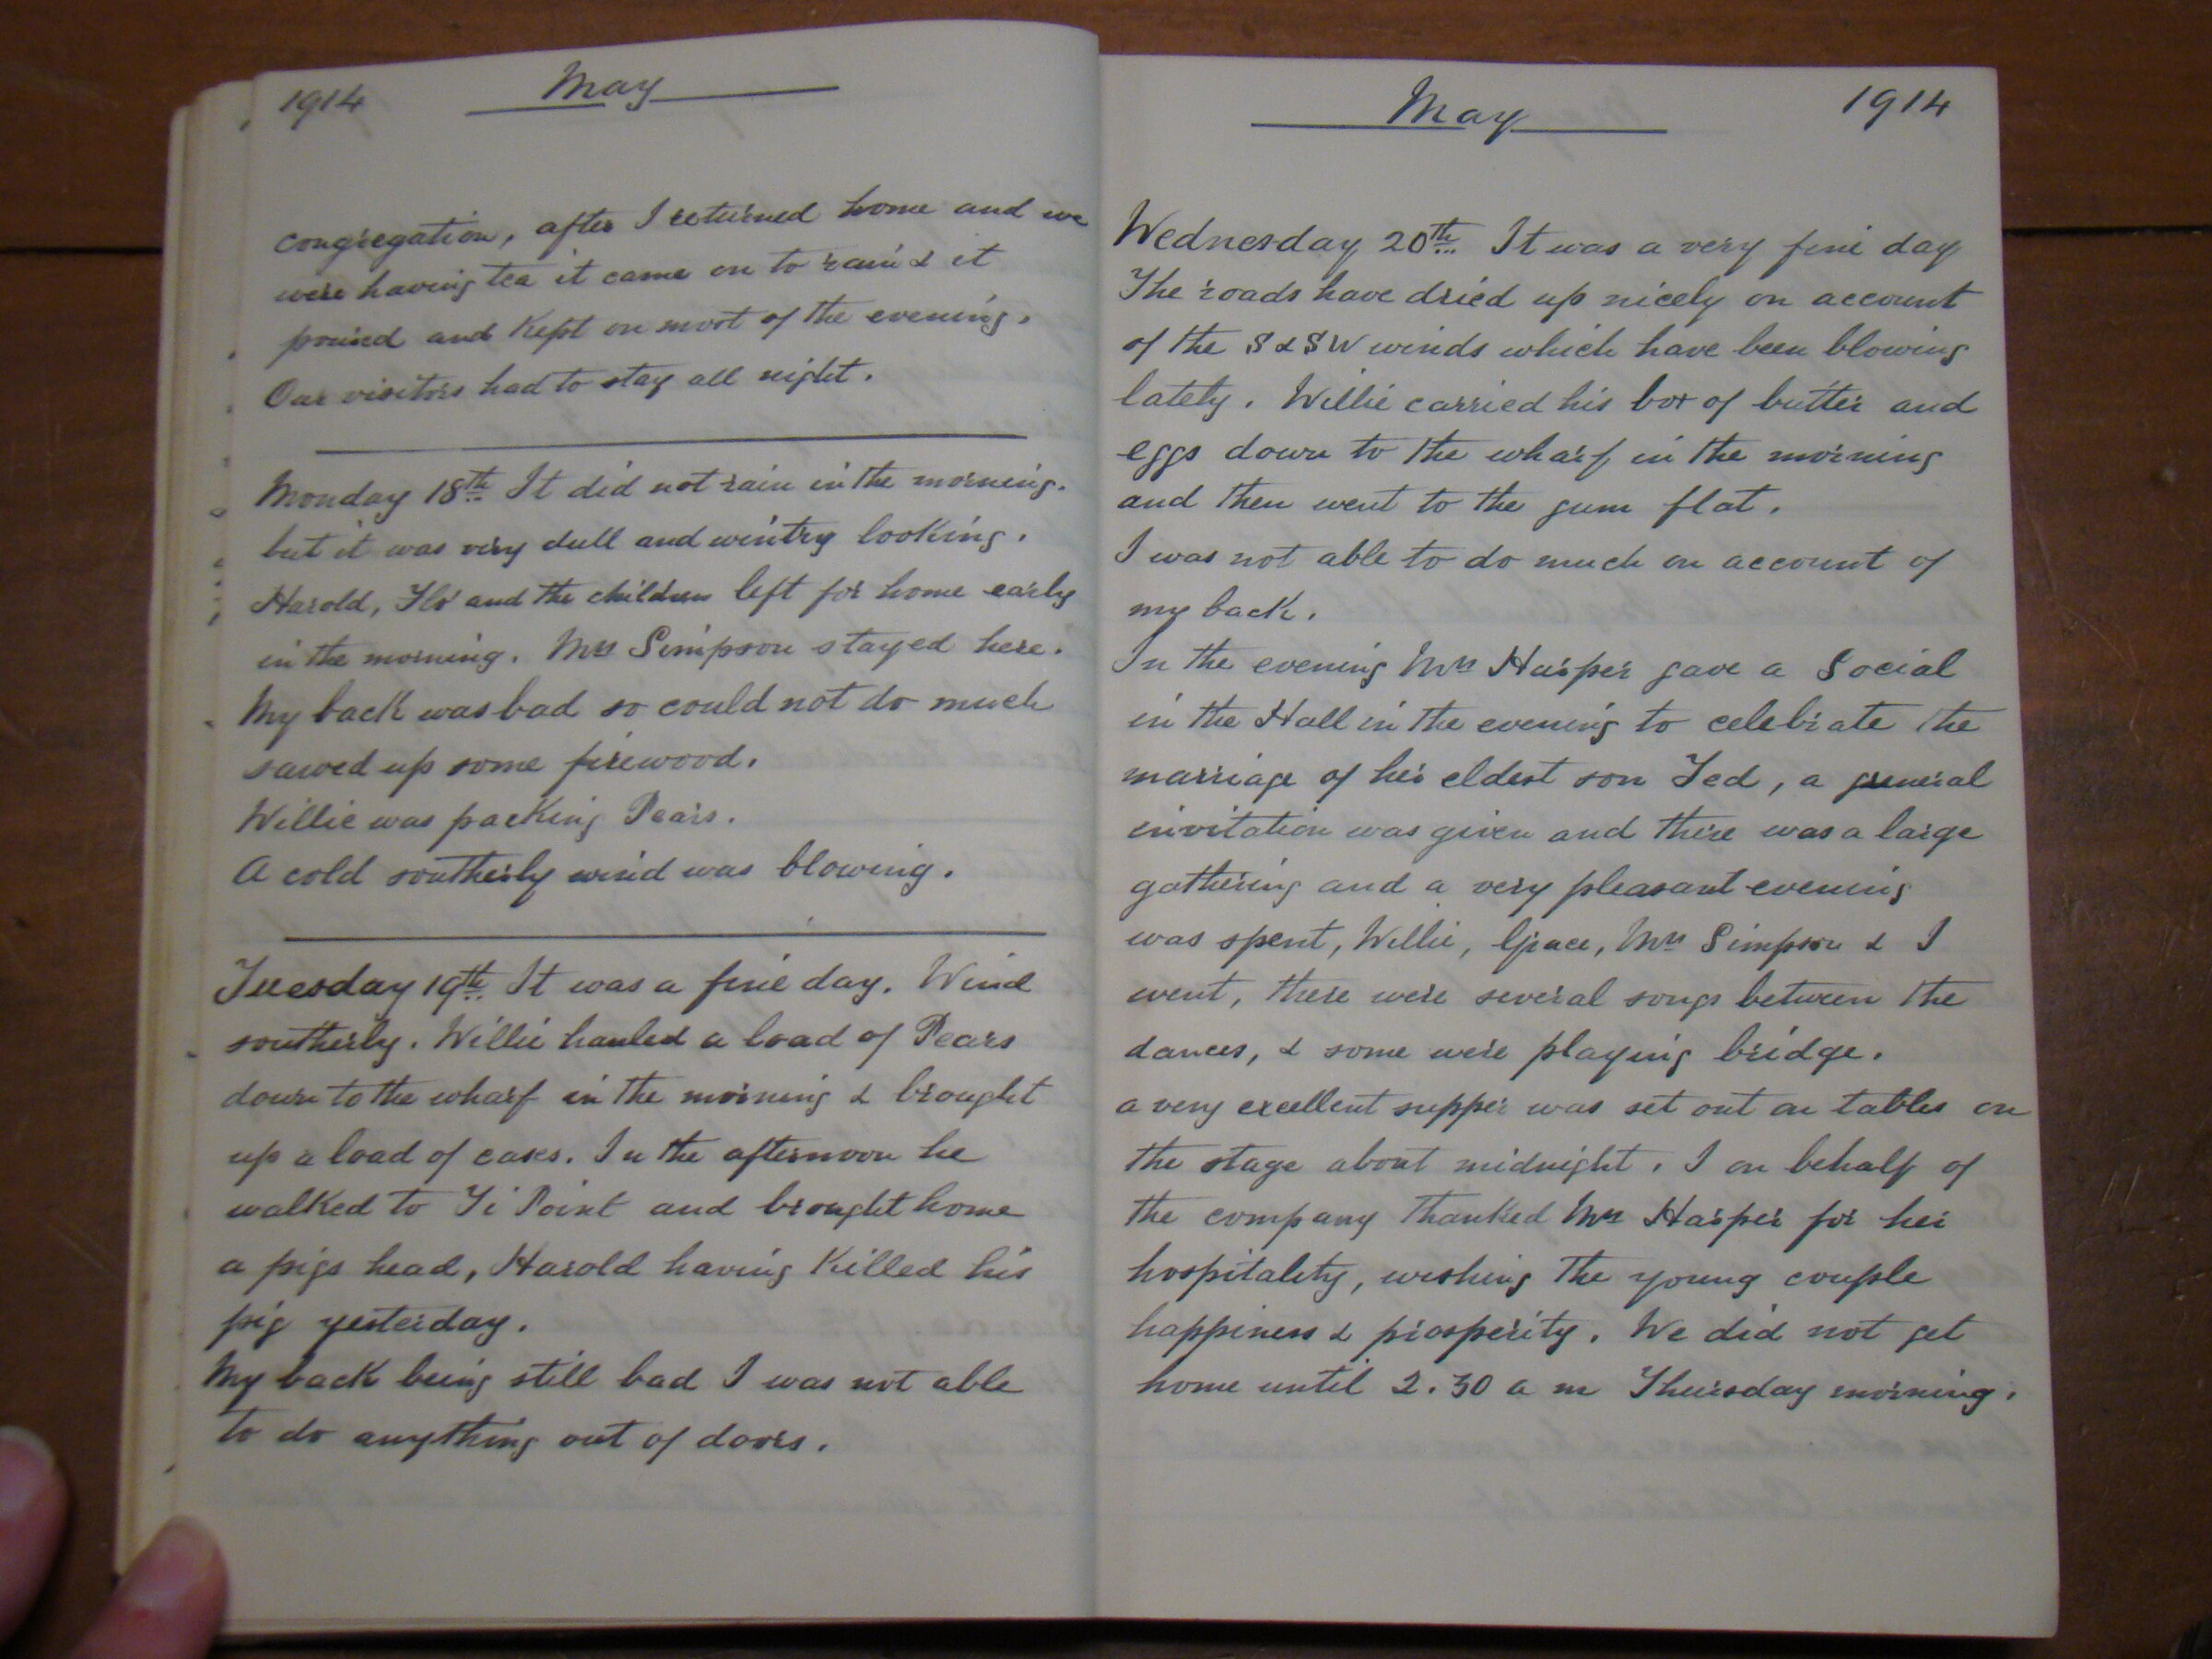 1914 May
congregation, after I returned home and we
were having tea it came on to rain & it
poured and kept on most of the evening.
Our visitors had to stay all night.
Monday 18th It did not rain in the morning.
but it was very dull and wintry looking.
Harold, Flo and the children left for home early
in the morning. Mrs Simpson stayed here.
My back was bad so could not do much
sawed up some firewood.
Willie was packing Pears.
A cold southerly wind was blowing.
Tuesday 19th It was a fine day. Wind
southerly. Willie hauled a load of Pears
down to the wharf in the morning & brought
up a load of cases. In the afternoon he
walked to Ti Point and brought home
a pigs head, Harold having killed his
pig yesterday.
My back being still bad I was not able
to do anything out of doors.
May 1914
Wednesday 20th It was a very fine day
The roads have dried up nicely on account
of the S & SW winds which have been blowing
lately. Willie carried his box of butter and
eggs down to the wharf in the morning
and then went to the gum flat.
I was not able to do much on account of
my back.
In the evening Mrs Harper gave a Social
in the Hall in the evening to celebrate the
marriage of her eldest son Ted, a general
invitation was given and there was a large
gathering and a very pleasant evening
was spent, Willie, Grace, Mrs Simpson & I
went, there were several songs between the
dances, & some were playing bridge.
a very excellent supper was set out on tables on
the stage about midnight. I on behalf of
the company thanked Mrs Harper for her
hospitality, wishing the young couple
happiness & prosperity. We did not get
home until 2.30 a m Thursday morning.